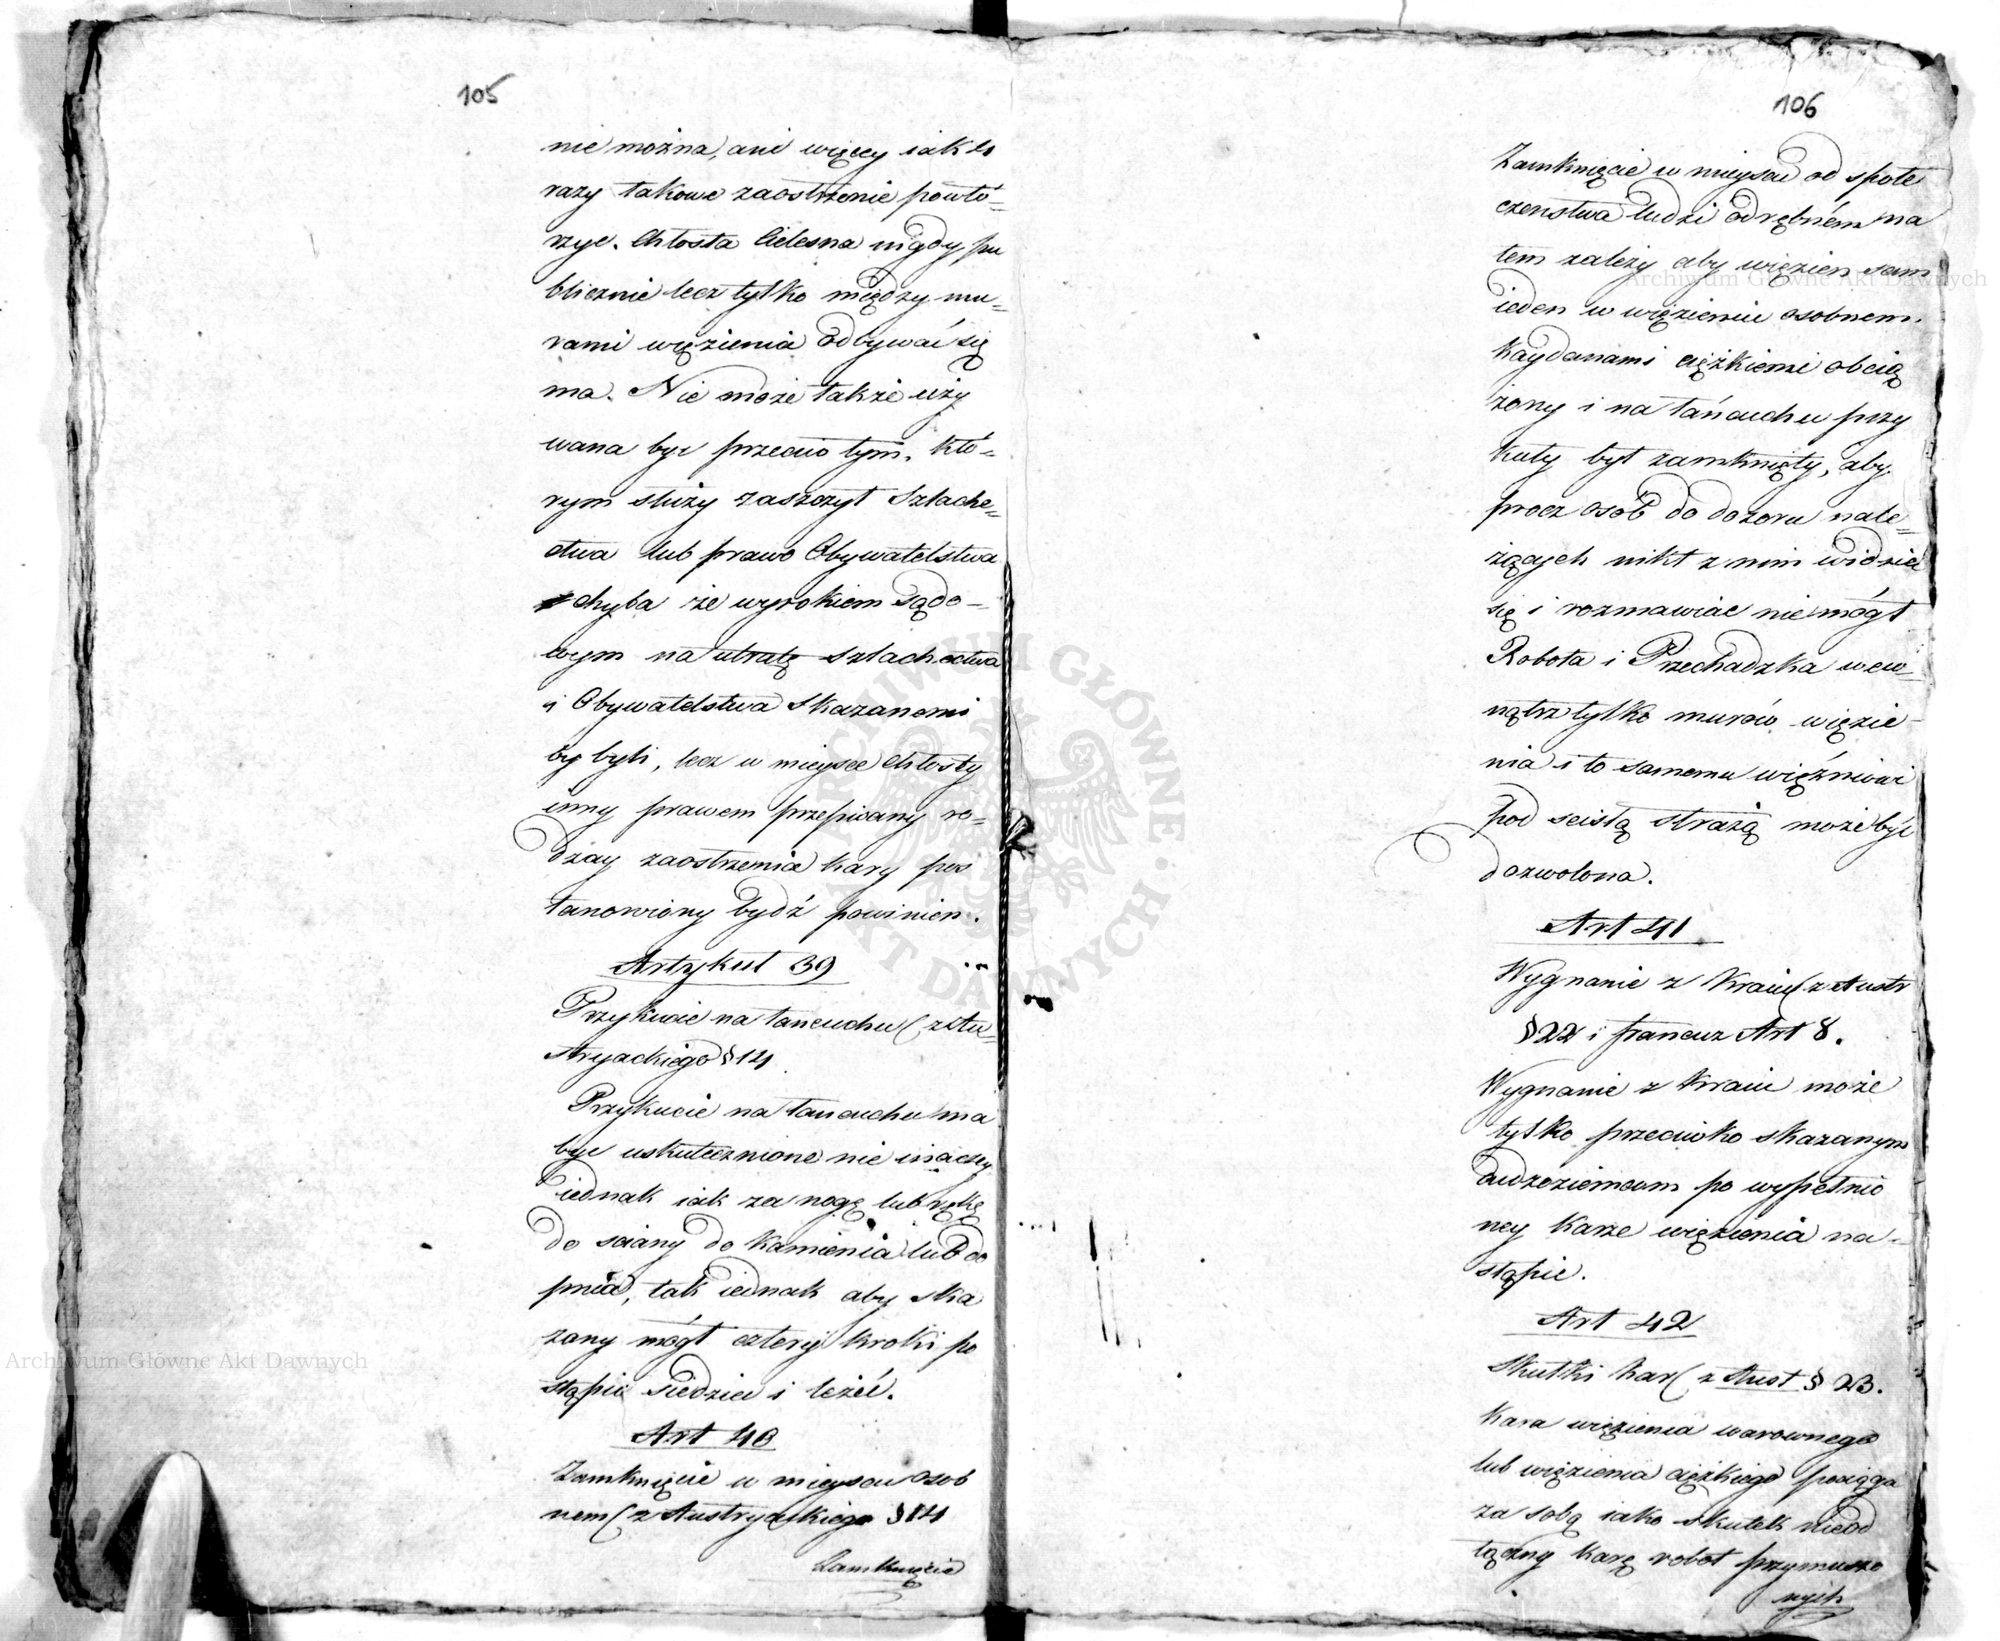 105
nie można, ani więcey iak to
razy takowe zaostrzenie powtó=
rzyc. Chłosta Cielesna nigdy pu
blicznie lecz tylko między mu=
rami więzienia odbywać się
ma. Nie może także uży
wana byc przeciw tym, któ=
rym służy zaszczyt Szlache=
ctwa lub prawo Obywatelstwa
chyba że wyrokiem Sądo-
wym na utratę szlachectwa
i Obywatelstwa Skazanemi
by byli, lecz w mieysce Chłosty
inny prawem przepisany ro=
dzay zaostrzenia kary pos
tanowiony bydź powinien.
Artykuł 39
Przykucie na łancuchu (z Au=
stryackiego § 14
Przykucie na łancuchu ma
byc uskutecznione nie inaczey
iednak iak za nogę lub rękę
do sciany do Kamienia lub do
pnia, tak iednak aby ska
zany mógł cztery kroki po
stąpic siedziec i leżéć.
Art 40
Zamknięcie w mieyscu osob
nem (z Austryackiego § 14
Zamknięcie
106
Zamknięcie w mieyscu od społe
czenstwa ludzi odrębném na
tem zależy aby więzien sam
ieden w więzieniu osobnem.
Kaydanami ciężkiemi obcią
żony i na łańcuchu przy
kuty był zamknięty, aby
procz osób do dozoru nale=
żących nikt z nim widziec
się i rozmawiac nie mógł
Robota i Przechadzka wew=
nątrz tylko murów więzie-
nia i to samemu więźniowi
pod scisłą strażą może być
dozwolona.
Art 41
Wygnanie z Kraiu (z Austr
§ 22 i francuz Art 8.
Wygnanie z Kraiu może
tylko przeciwko skazanym
cudzoziemcom po wypełnio
ney karze więzienia na-
stąpic.
Art 42
Skutki kar (z Aust § 23.
Kara więzienia warownego
lub więzienia ciężkiego pociąga
za sobą iako skutek nieod
łączny karę robot przymuszo
nych
Archiwum Główne Akt Dawnych
Archiwum Główne Akt Dawnych
ARCHIWUM GŁÓWNE AKT DAWNYCH